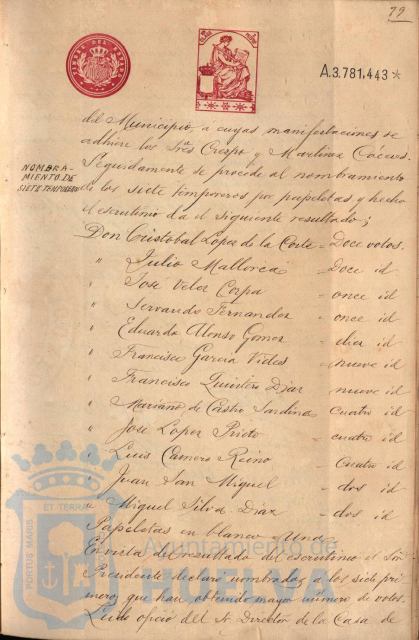 79
TIMBRE DEL ESTADO
A.3.781,443 *
del Municipio, a cuyas manifestaciones se
adhiere los Sres. Crespo y Martinez Cáceres.
NOMBRA-
MIENTO DE
SIETE TEMPOREROS
Seguidamente se procede al nombramiento
de los siete temporeros por papeletas y hecho
el escrutinio da el siguiente resultado;
Don Cristobal Lopez de la Corte = Doce votos.
" Julio Mallorca = Doce id
" Jose Velez Corpa = once id
" Servando Fernandez = once id
" Eduardo Alonso Gomez = diez id
" Francisco Garcia Vides = nueve id
" Francisco Quintero Diaz = nueve id
" Mariano de Castro Sardina = cuatro id
" Jose Lopez Prieto = cuatro id
" Luis Camero Reino = cuatro id
" Juan San Miguel = dos id
" Miguel Silva Diaz = dos id
Papeletas en blanco una
En vista del resultado del escrutinio el Sor.
Presidente declaró nombrados a los siete pri-
meros que han obtenido mayor número de votos.
Leido oficio del Sr Director de la Casa de
PORTUS MARIS
ET TERRAE
Ayuntamiento de
HUELVA